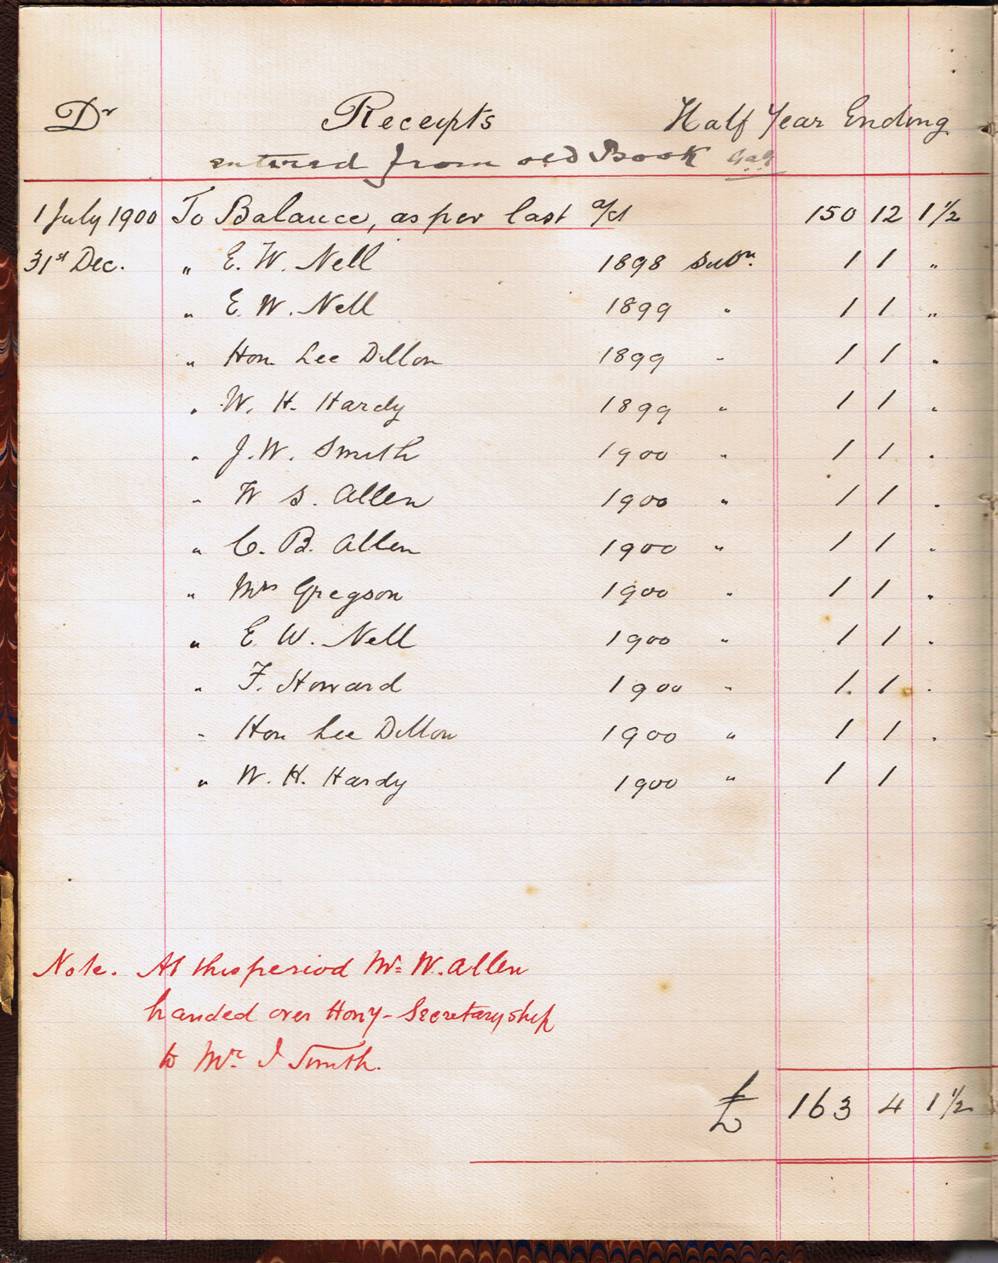 Dr Receipts Half Year Ending
entered from old Book
1 July 1900 To Balance, as per last a/d 150 12 1½
31st Dec. " E. W. Nell 1898 Subn. 1 1 "
" E. W. Nell 1899 " 1 1 "
" Hon Lee Dillon 1899 " 1 1 "
" W. H. Hardy 1899 " 1 1 "
" J. W. Smith 1900 " 1 1 "
" W S. Allen 1900 " 1 1 "
" C. B. Allen 1900 " 1 1 "
" Mrs Gregson 1900 " 1 1 "
" E W. Nell 1900 " 1 1 "
" F. Howard 1900 " 1 1 "
" Hon Lee Dillon 1900 " 1 1 "
" W. H. Hardy 1900 " 1 1
Note. At this period Mr W. Allen
handed over Hony-Secretaryship
to Mr. J Smith.
£ 163 4 1½